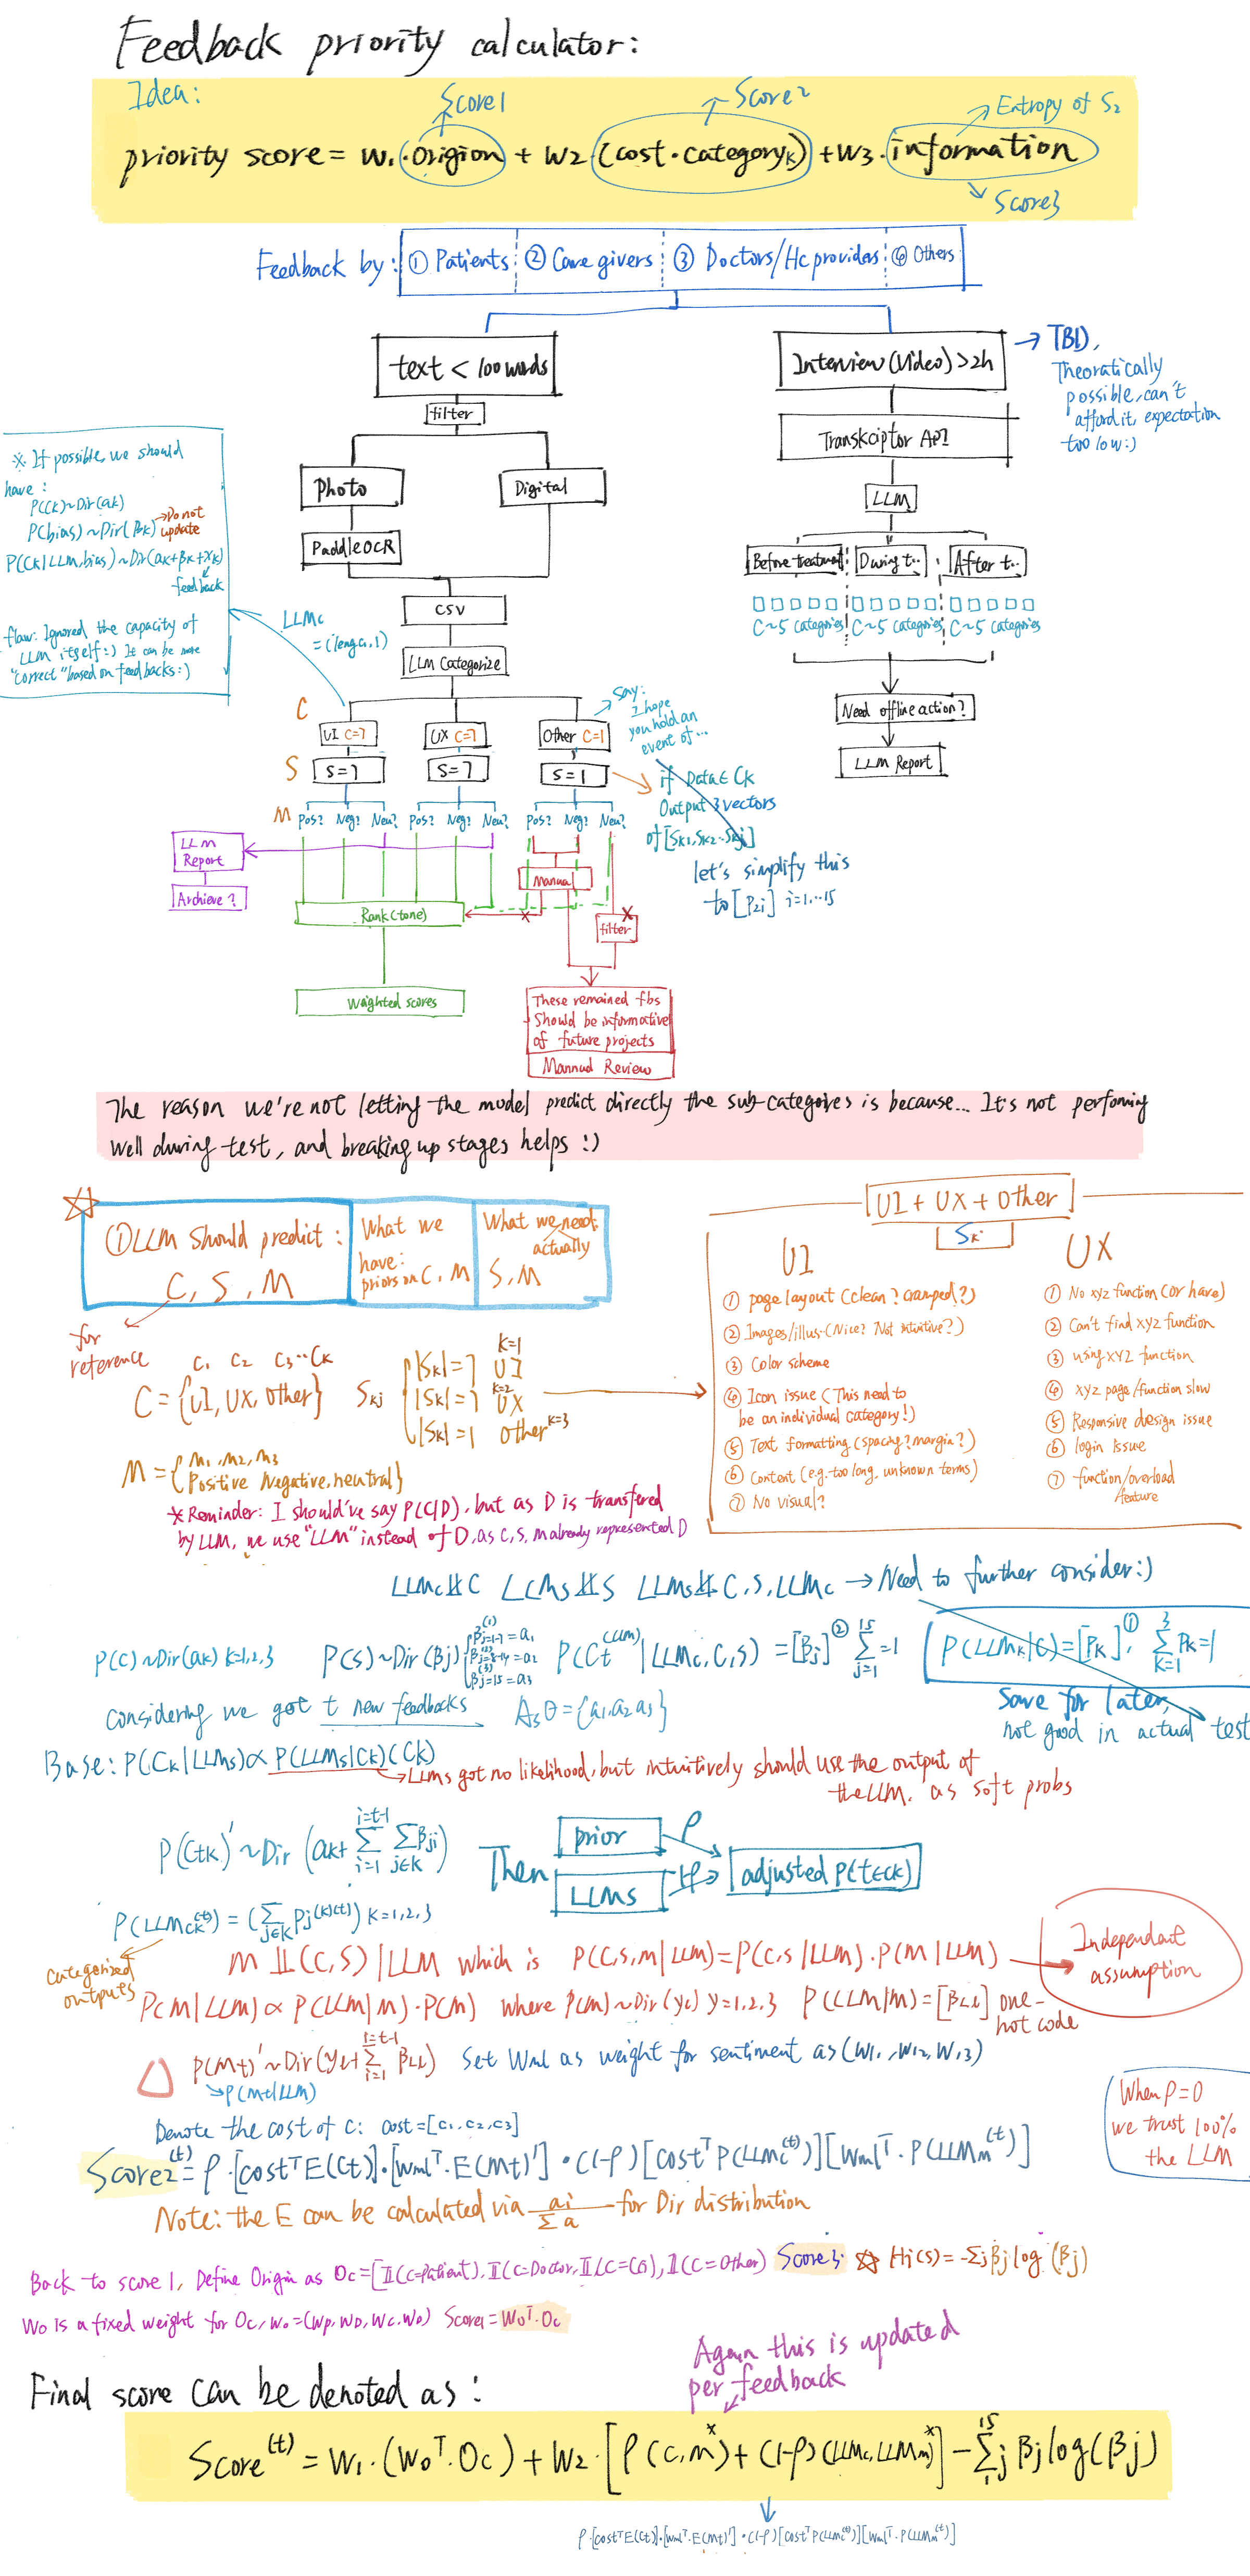 Feedback priority calculator:
Idea:
Score1
Score2
Entropy of S₂
priority score = W₁·Origion + W2·(cost·categoryₖ) + W3·information
Score3
Feedback by: ① Patients ② Care givers ③ Doctors/Hc providers ④ Others
text < 100 words
filter
Photo
Digital
PaddleOCR
CSV
LLM Categorize
Interview (Video) >2h
→ TBD,
Theoratically
possible, can't
afford it, expectation
too low:)
LLM
Before treatment
During t..
After t..
C~5 Categories
C~5 Categories
C~5 Categories
Need offline action?
LLM Report
※ If possible, we should
have:
P(Ck)~Dir(αk)
P(bias)~Dir(βk) → Do not
update
P(Ck|LLM,bias)~Dir(αk+βk+xk)
feedback
flaw: Ignored the capacity of
LLM itself:) It can be more
"correct" based on feedbacks:)
LLMc
C
UI C=7
UX C=7
Other C=1
Say:
I hope
you hold an
event of...
S
S=7
S=7
S=1
if Data∈Ck
Output 3 vectors
of [Sk1,Sk2..Skj]
let's simplify this
to [P2i] i=1,..15
M
Pos? Neg? Neu?
Pos? Neg? Neu?
Pos? Neg? Neu?
LLM
Report
Archieve?
Manual
Rank(tone)
filter
Weighted scores
These remained fbs
Should be informative
of future projects
Mannual Review
The reason we're not letting the model predict directly the sub-categories is because... It's not performing
well during test, and breaking up stages helps :)
① LLM should predict:
C, S, M
What we
have:
priors on C, M
What we need
actually
S, M
for
reference
UI + UX + Other
Sk·
UI
① page layout (clean? cramped?)
② Images/illus.(Nice? Not intuitive?)
③ Color scheme
④ Icon issue (This need to
be an individual category!)
⑤ Text formatting (spacing? margin?)
⑥ Content (e.g. too long, unknown terms)
⑦ No visual?
UX
① No xyz function (or have)
② Can't find xyz function
③ using XYZ function
④ xyz page/function slow
⑤ Responsive design issue
⑥ login issue
⑦ function/overload
feature
C₁ C₂ C₃··Ck
C={UI, UX, Other}
Skj
|Sk|=7 k=1 UI
|Sk|=7 k=2 UX
|Sk|=1 Other k=3
m₁, m₂, m₃
M={Positive Negative, neutral}
*Reminder: I should've say P(C|D), but as D is transfered
by LLM, we use "LLM" instead of D, as C, S, M already represented D
LLMc⫫̸C LLMs⫫̸S LLMs⫫̸C,S,LLMc → Need to further consider:)
P(C)~Dir(αk) k=1,2,3
P(S)~Dir(βj)
[βj]② Σ=1
P(LLMk|C)=[Pk],① Σ Pk=1
Save for later,
not good in actual test
Considering we got t new feedbacks
Asθ={a₁,a₂,a₃}
Base: P(Ck|LLMs)∝P(LLMs|Ck)(Ck)
→LLMs got no likelihood, but intuitively should use the output of
the LLM. as soft probs
P(Ctk)'~Dir(αk+ Σ Σ βji)
Then
prior
ρ
LLMs
1-ρ
adjusted P(t∈Ck)
P(LLMck⁽ᵗ⁾)=(Σ Pj⁽ᵏ⁾⁽ᵗ⁾) k=1,2,3
Categorized
outputs
M⫫(C,S)|LLM which is P(C,S,M|LLM)=P(C,S|LLM)·P(M|LLM)
Independent
assumption
P(M|LLM)∝P(LLM|M)·P(M) where P(M)~Dir(γ) γ=1,2,3 P(LLM|M)=[βLl] one-
hot code
Set Wml as weight for sentiment as (W11, W12, W13)
P(Mt|LLM)
When ρ=0
we trust 100%
the LLM
Denote the cost of C: cost=[c₁,c₂,c₃]
Score2⁽ᵗ⁾=ρ·[costᵀE(Ct)]·[Wmlᵀ·E(Mt)']·(1-ρ)[costᵀP(LLMc⁽ᵗ⁾)][Wmlᵀ·P(LLMm⁽ᵗ⁾)]
Note: the E can be calculated via ai/Σa for Dir distribution
Back to score 1, Define Origin as Oc=[𝕀(C=Patient), 𝕀(C=Doctor, 𝕀(C=CG), 𝕀(C=Other)
Score3: ☆ Hi(S)=-Σj βj log(βj)
Wo is a fixed weight for Oc, Wo=(Wp, WD, Wc, Wo) Score1=Woᵀ·Oc
Again this is updated
per feedback
Final score can be denoted as:
Score⁽ᵗ⁾=W₁·(Woᵀ·Oc)+W2·[ρ(C,m*)+(1-ρ)(LLMc,LLMm*)]-Σj βj log(βj)
ρ·[costᵀE(Ct)]·[Wmlᵀ·E(Mt)']·(1-ρ)[costᵀP(LLMc⁽ᵗ⁾)][Wmlᵀ·P(LLMm⁽ᵗ⁾)]